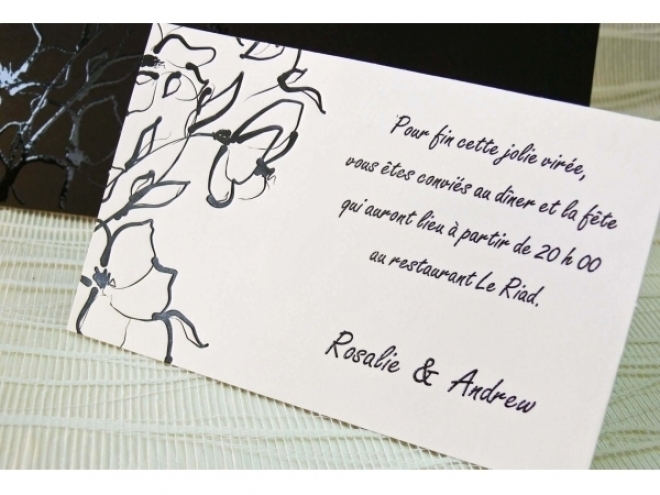 Pour fin cette jolie virée,
vous êtes conviés au dîner et la fête
qui auront lieu à partir de 20 h 00
au restaurant Le Riad.
Rosalie & Andrew